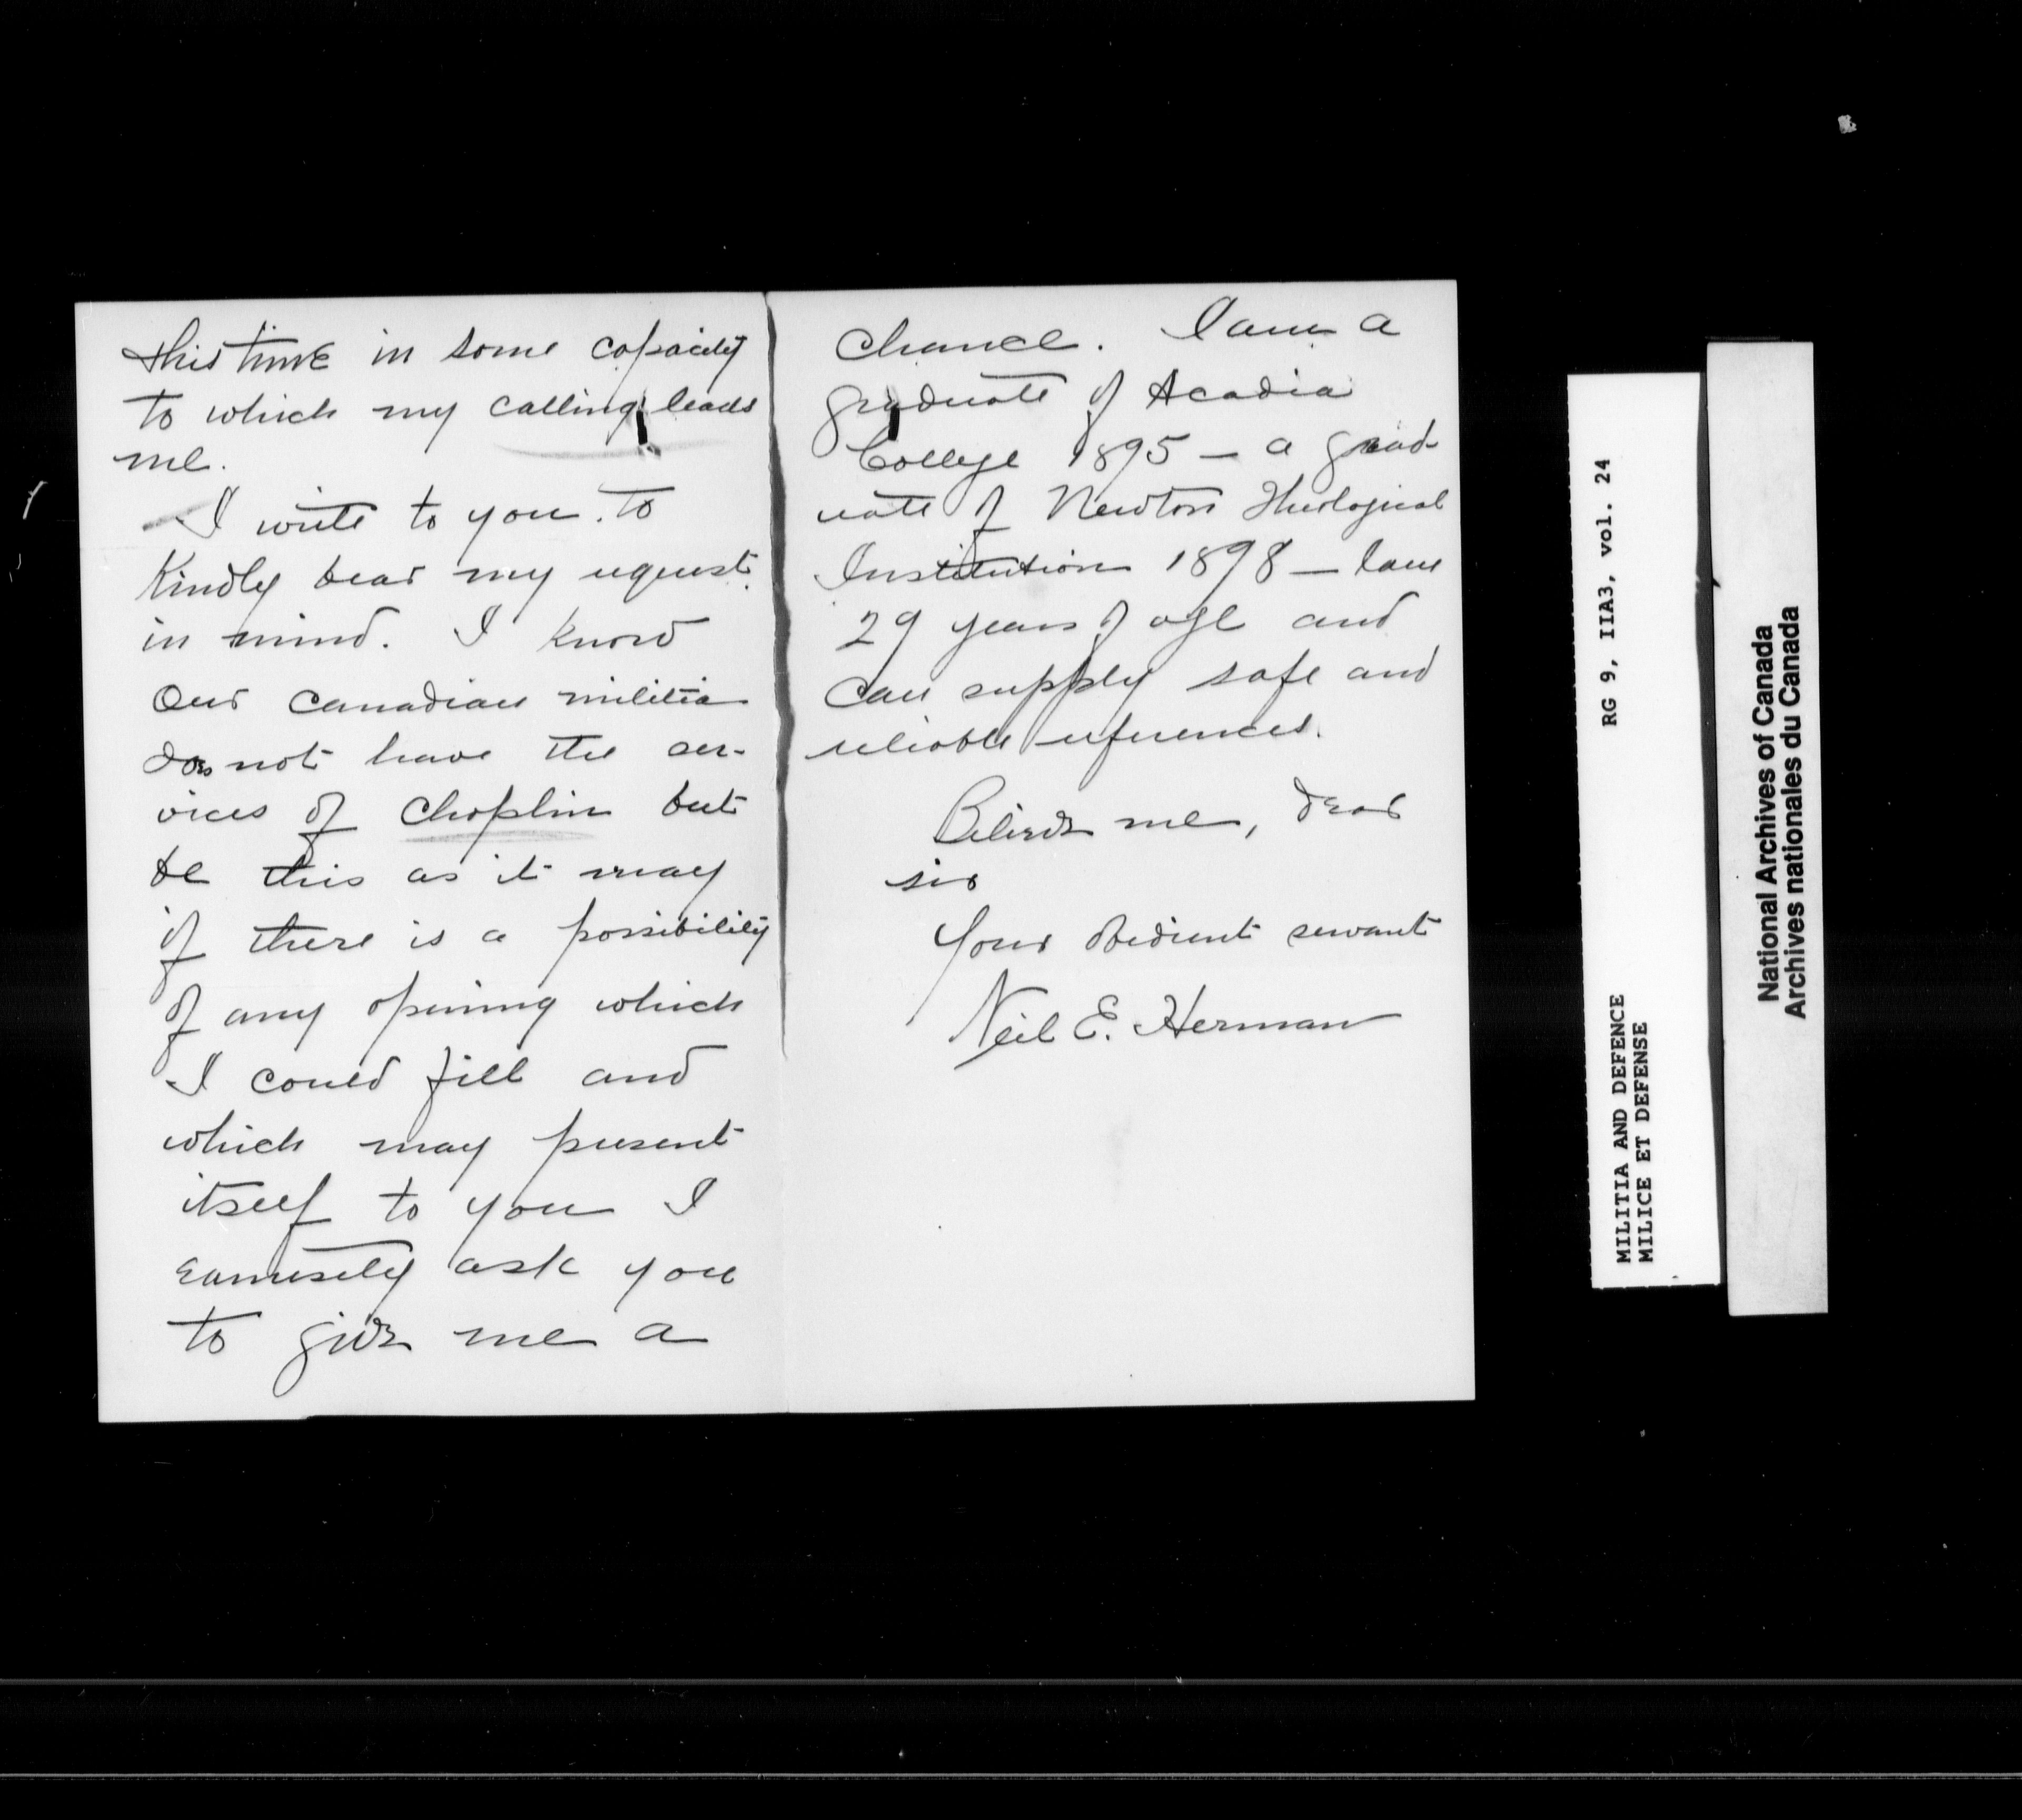 this time in some capacity
to which my calling leads
me.
I write to you to
Kindly bear my request
in mind. I know
our Canadian militia
does not have the ser-
vices of Choplin but
be this as it may
if there is a possibility
of any opening which
I could fill and
which may present
itself to you I
earnestly ask you
to give me a
chance. I am a
graduate of Acadia
College 1895 — a grad-
uate of Newton Theological
Institution 1898 — I am
29 years of age and
can supply safe and
reliable references.
Believe me, dear
sir
Your obedient servant
Neil E. Herman
MILITIA AND DEFENCE RG 9, IIA3, vol. 24
MILICE ET DEFENSE
National Archives of Canada
Archives nationales du Canada